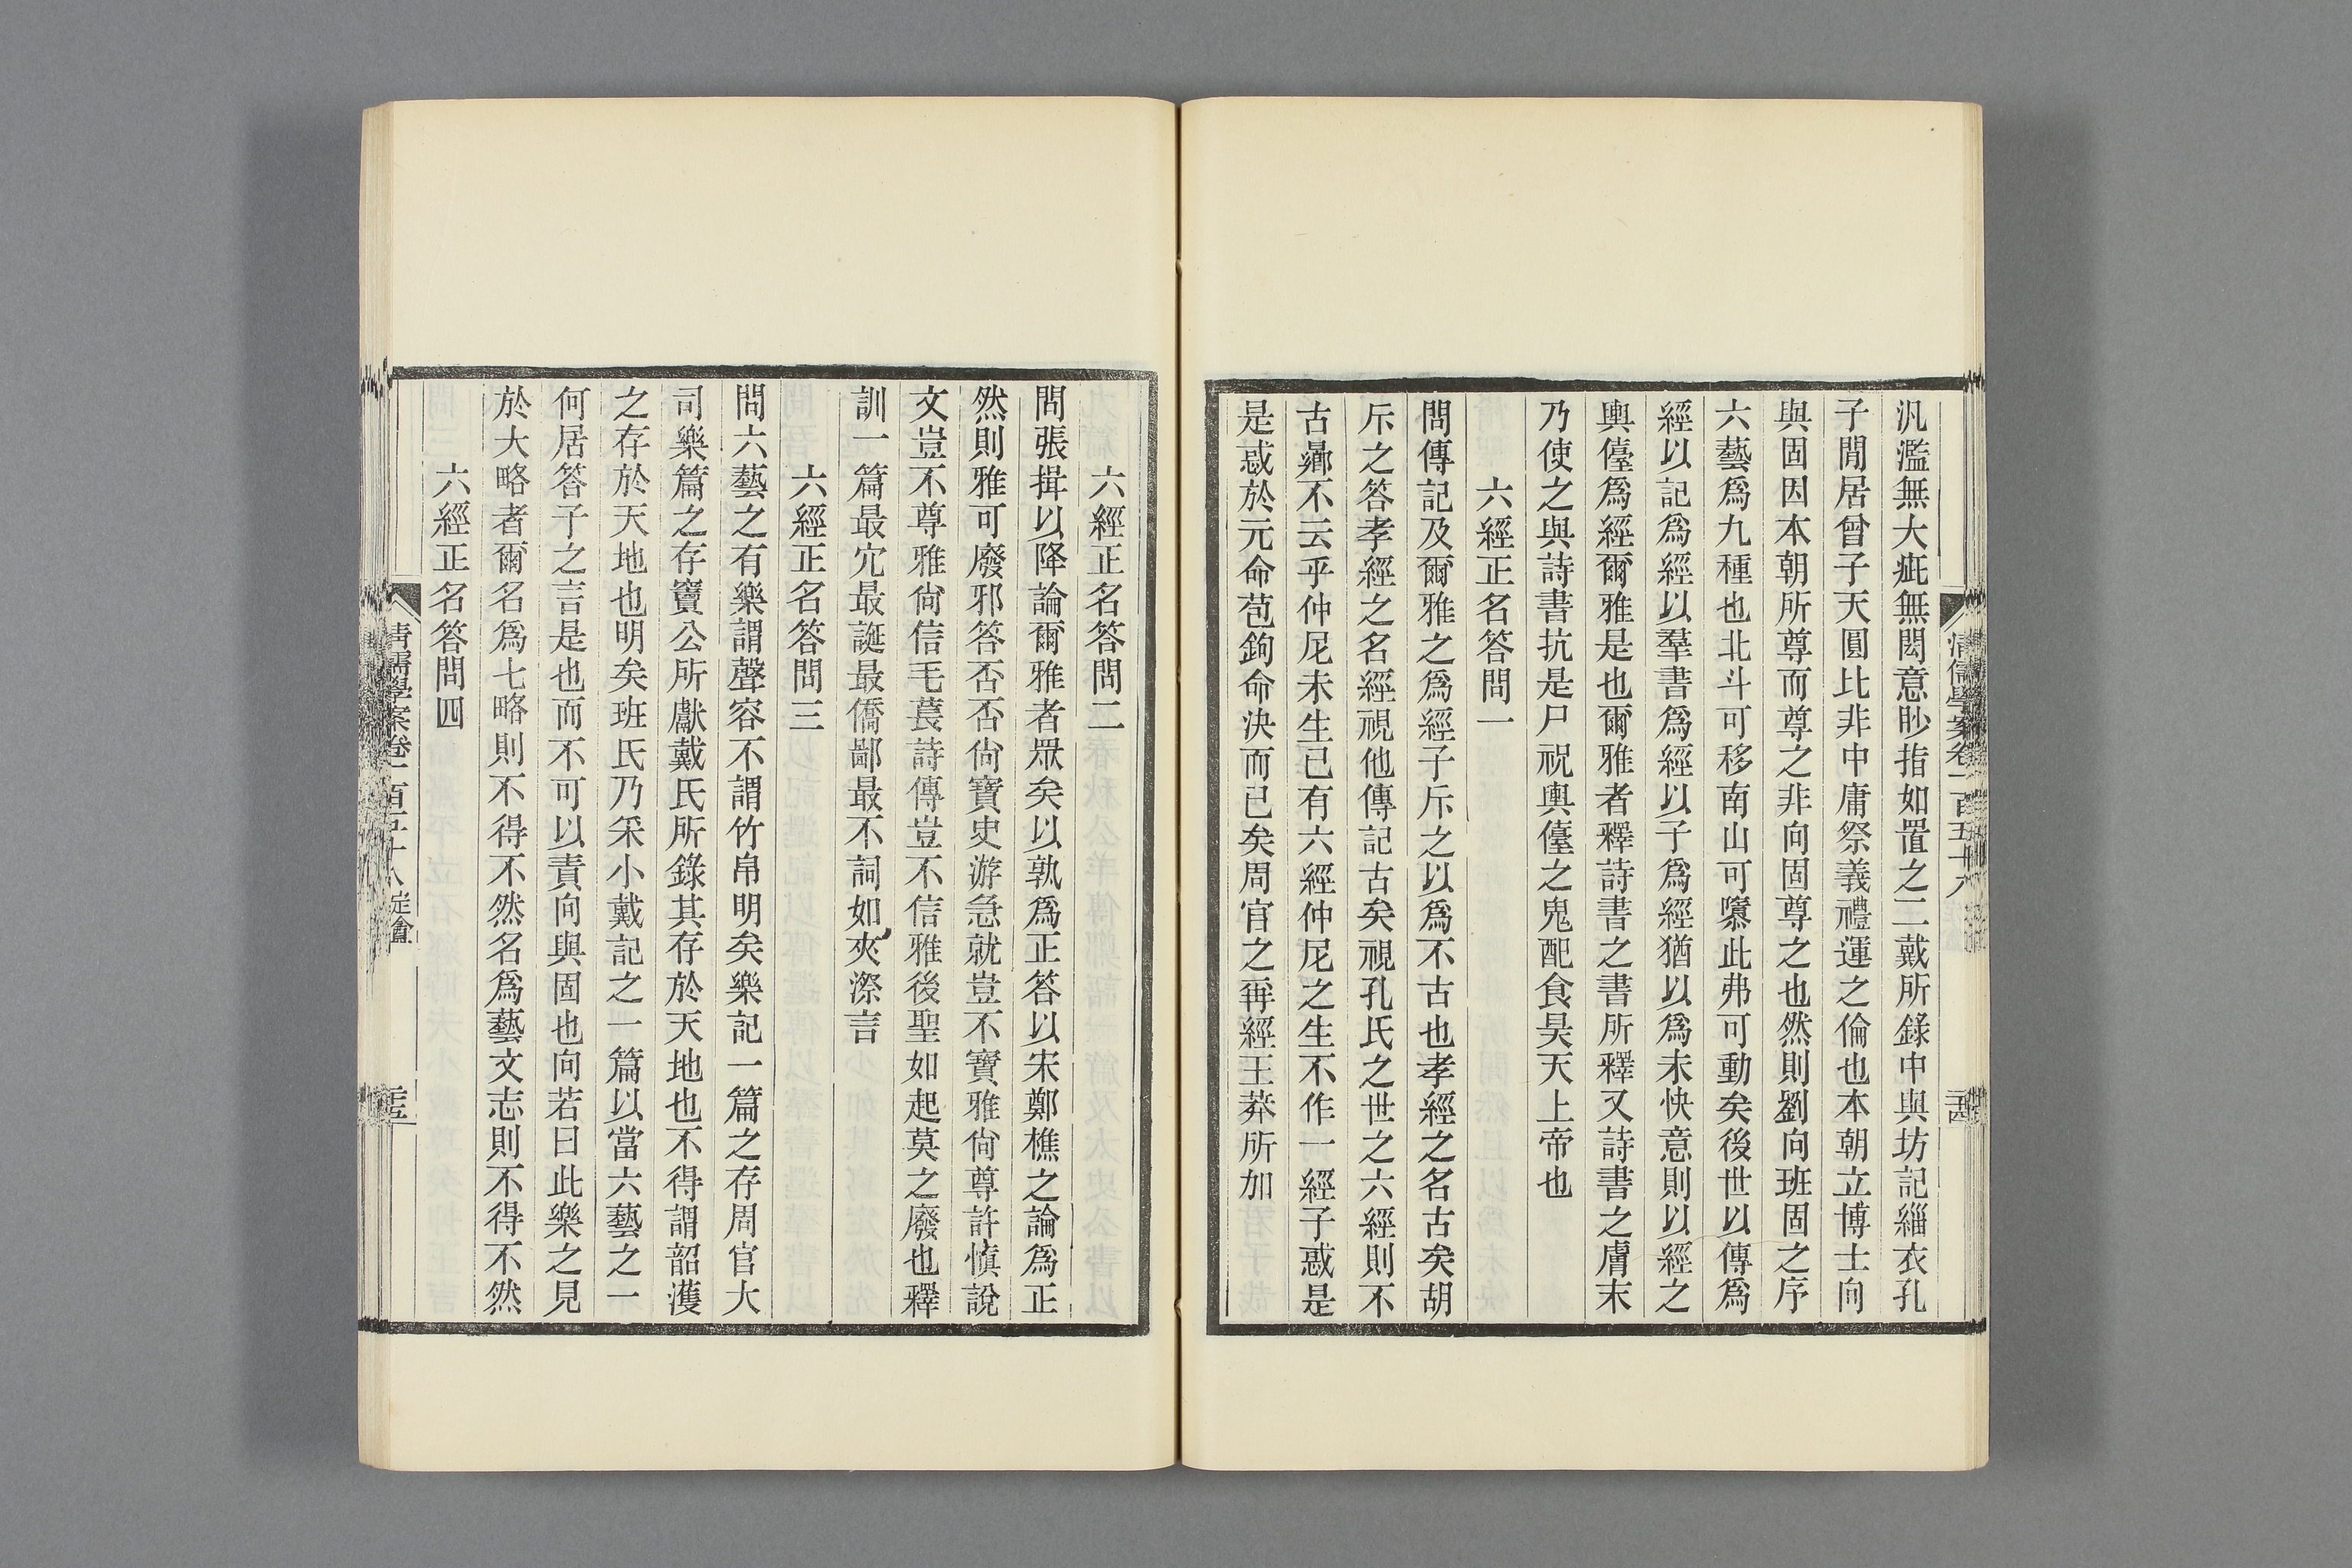 汎濫無大疵無閎意眇指如置之二戴所錄中與坊記緇衣孔
子閒居曾子天圓比非中庸祭義禮運之倫也本朝立博士向
與固因本朝所尊而尊之非向固尊之也然則劉向班固之序
六藝爲九種也北斗可移南山可隳此弗可動矣後世以傳爲
經以記爲經以羣書爲經以子爲經猶以爲未快意則以經之
輿儓爲經爾雅是也爾雅者釋詩書之書所釋又詩書之膚末
乃使之與詩書抗是尸祝輿儓之鬼配食昊天上帝也
六經正名答問一
問傳記及爾雅之爲經子斥之以爲不古也孝經之名古矣胡
斥之答孝經之名經視他傳記古矣視孔氏之世之六經則不
古曏不云乎仲尼未生已有六經仲尼之生不作一經子惑是
是惑於元命苞鉤命決而已矣周官之稱經王莽所加
清儒學案卷一百五十八
六經正名答問二
問張揖以降論爾雅者眾矣以孰爲正答以宋鄭樵之論爲正
然則雅可廢邪答否否尙寶史游急就豈不寶雅尙尊許愼說
文豈不尊雅尙信毛萇詩傳豈不信雅後聖如起莫之廢也釋
訓一篇最宂最誕最僑鄙最不詞如夾漈言
六經正名答問三
問六藝之有樂謂聲容不謂竹帛明矣樂記一篇之存周官大
司樂篇之存竇公所獻戴氏所錄其存於天地也不得謂韶濩
之存於天地也明矣班氏乃采小戴記之一篇以當六藝之一
何居答子之言是也而不可以責向與固也向若曰此樂之見
於大略者爾名爲七略則不得不然名爲藝文志則不得不然
六經正名答問四
清儒學案卷一百五十八 定盦